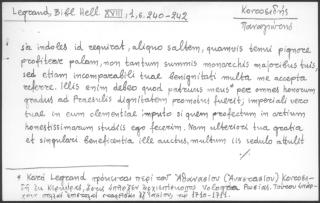 Legrand, Bibl. Hell. XVIII, 1, σ. 240-242
Κοτσοβίδης
Παναγιώτης
sis indoles id requirat, aliquo saltem, quamvis tenui pignore
profiterer palam, non tantum summis monarchis majoribus tuis,
sed etiam incomparabili tuae benignitati multa me accepta
referre. Illis enim debeo quod patruus meus* per omnes honorum
gradus ad Praesulis dignitatem promotus fuerit; imperiali vero
tuae in eum clementiae imputo si quem profectum in artium
honestissimarum studiis ego fecerim. Nam ulteriori tua gratia
et singulari beneficentia ille auctus, multum iis sedulo abtulit
* Κατά Legrand πρόκειται περί τού Ἀθανασίου (Ἀναστασίου)
ἐκ Κερκύρας, ὅστις ὑπῆρξεν ἀρχιεπίσκοπος Vologda Ρωσίας.